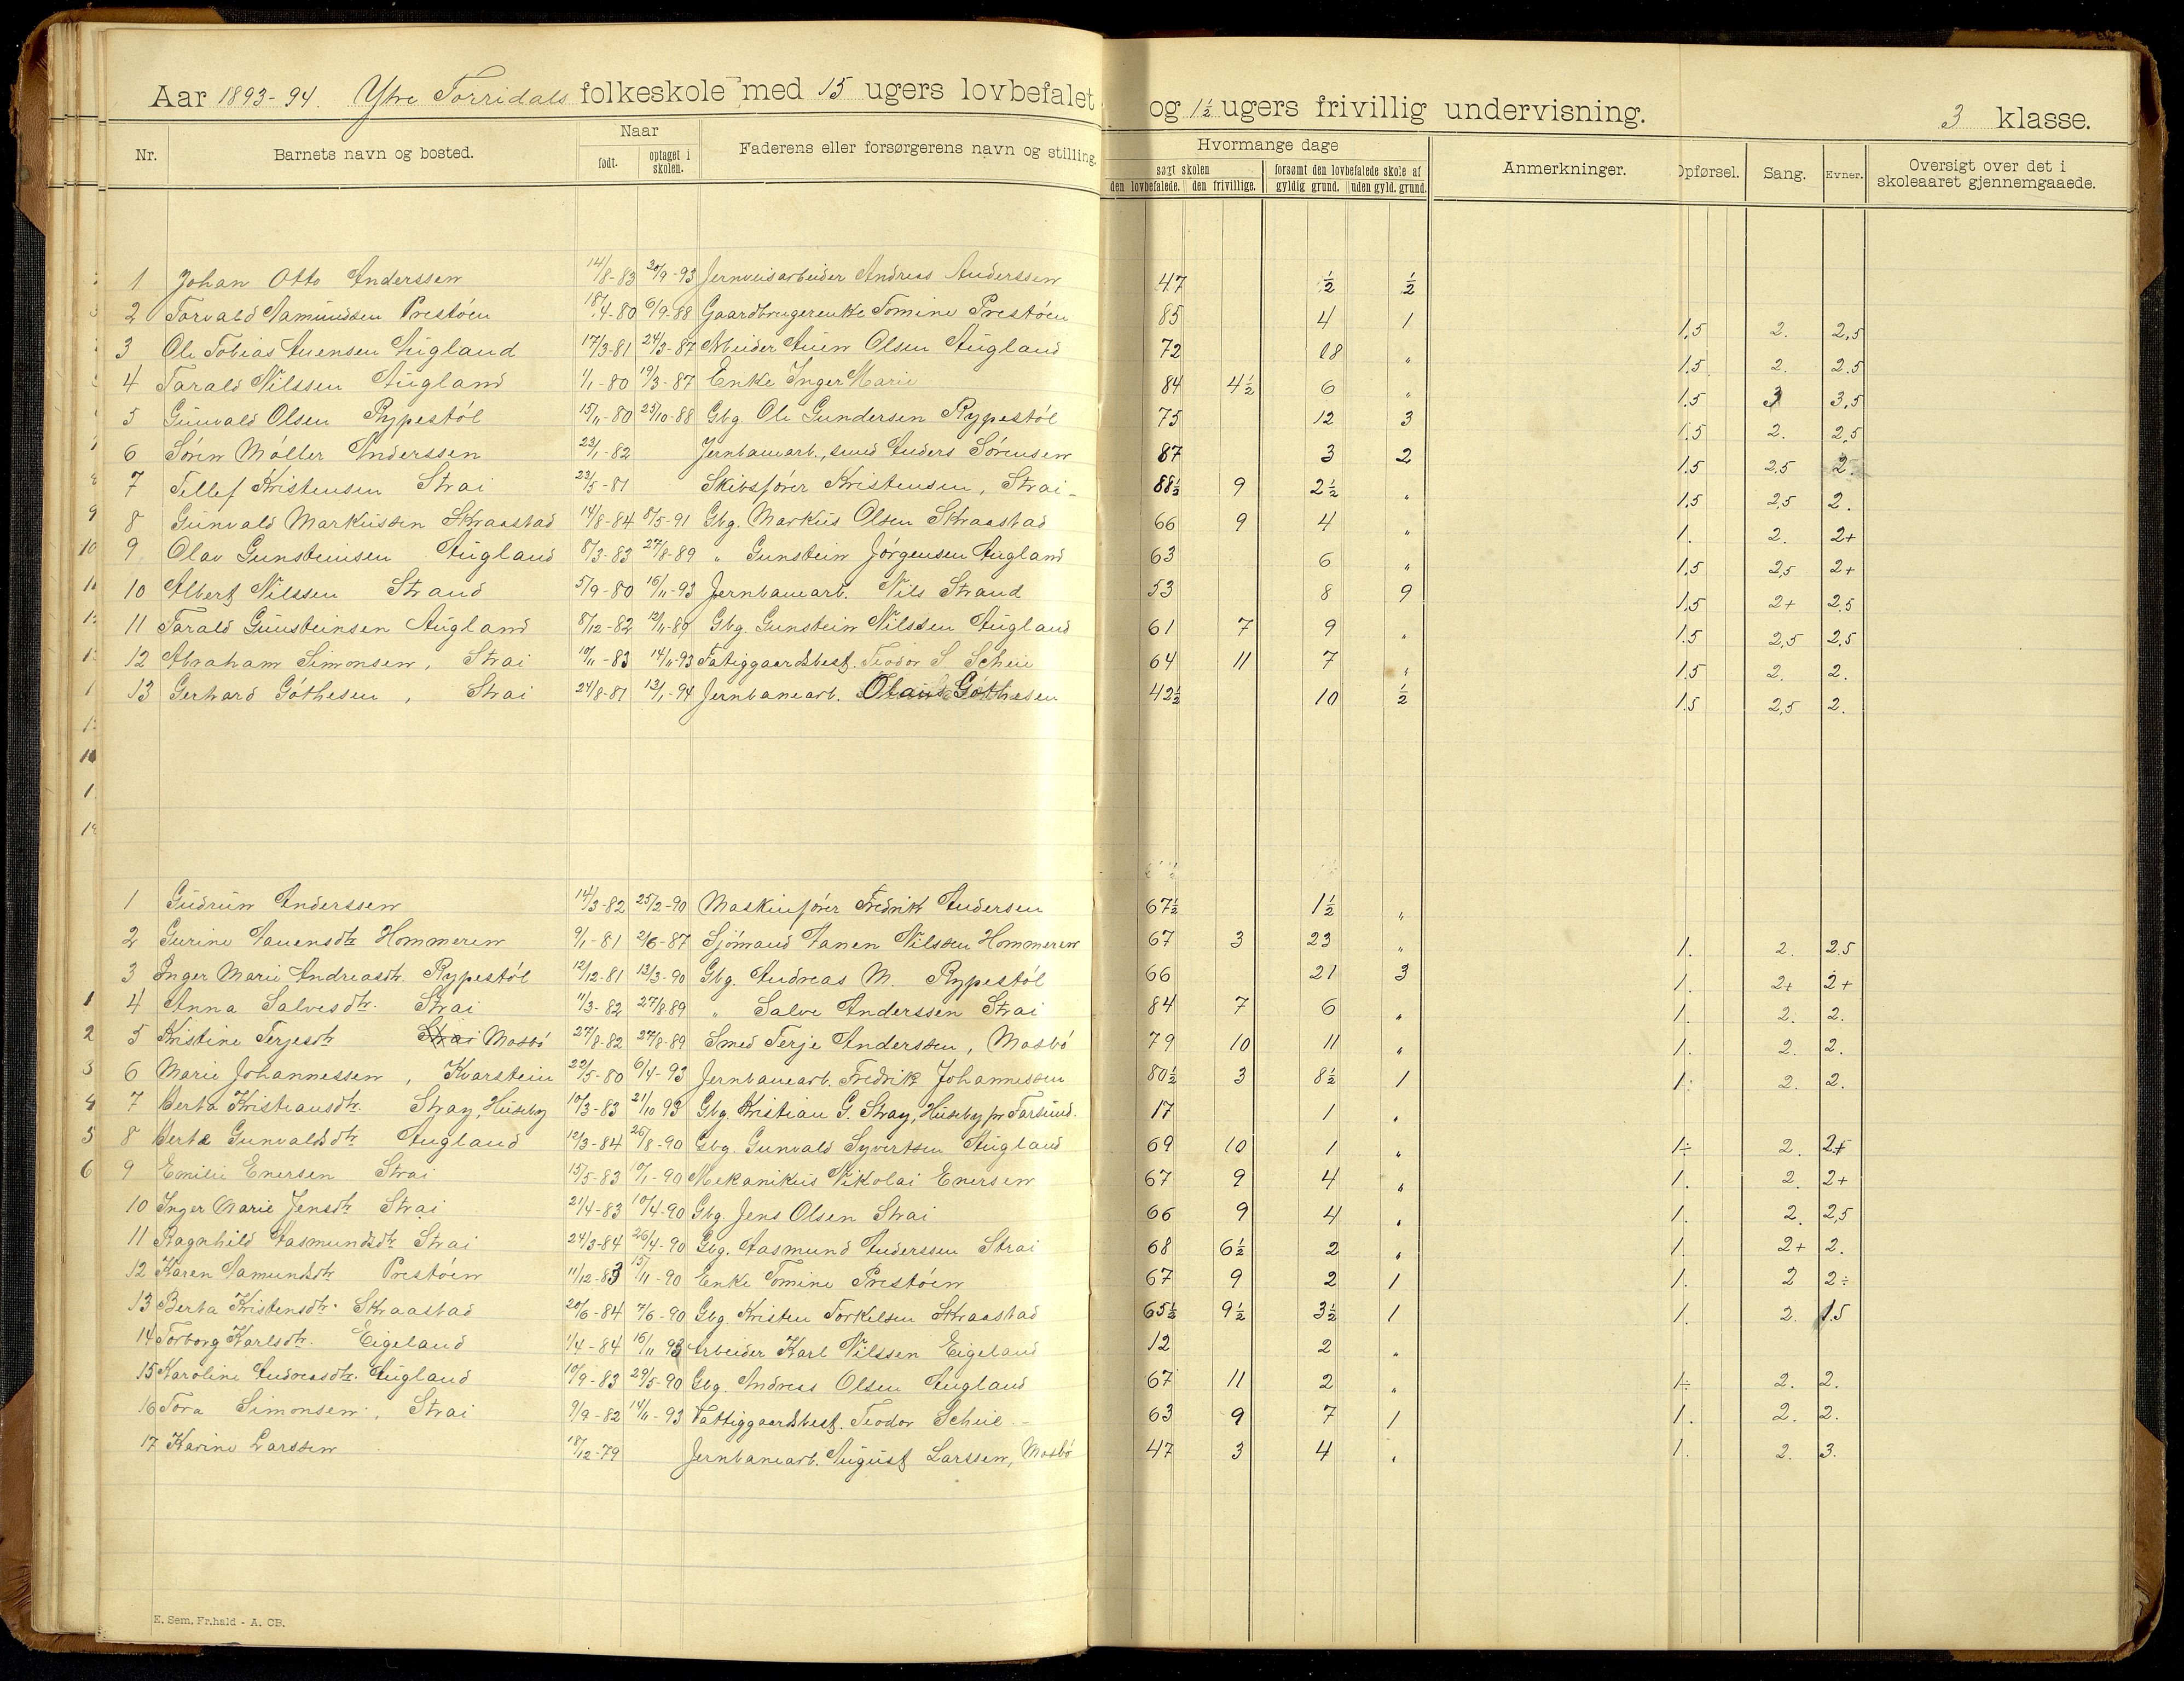 Aar 1893-94. Ytre Torridals folkeskole med 15 ugers lovbefalet og 1½ ugers frivillig undervisning. 3 klasse.
Nr. Barnets navn og bosted. Naar født. optaget i skolen. Faderens eller forsørgerens navn og stilling. Hvormange dage søgt skolen den lovbefalede. den frivillige. forsømt den lovbefalede skole af gyldig grund. uden gyld. grund. Anmerkninger. Opførsel. Sang. Evner. Oversigt over det i skoleaaret gjennemgaaede.
1 Johan Otto Anderssen 14/8-83 20/9-93 Jernveisarbeider Andreas Anderssen 47 ½ ½
2 Torvald Aamundsen Prestöen 18/4-80 6/9-88 Gaardbrugerenke Tomine Prestöen 85 4 1 1,5 2. 2,5
3 Ole Tobias Auensen Augland 17/3-81 24/3-87 Arbeider Auen Olsen Augland 72 18 " 1,5 2. 2.5
4 Tarald Nilssen Augland 1/1-80 19/3-87 Enke Inger Marie 84 4½ 6 " 1.5 3 3,5
5 Gunvald Olsen Rypestöl 15/11-80 25/10-88 Gbg. Ole Gundersen Rypestöl 75 12 3 1.5 2. 2,5
6 Sören Möller Anderssen 23/1-82 Jernbanearb., smed Anders Sörensen 87 3 2 1.5 2.5 2.
7 Tellef Kristensen Strai 23/5-81 Skibsförer Kristensen, Strai- 88½ 9 2½ " 1,5 2,5 2.
8 Gunvald Markussen Skraastad 14/8-84 8/5-91 Gbg. Markus Olsen Skraastad 66 9 4 " 1. 2. 2+
9 Olav Gunsteinsen Augland 8/3-83 27/8-89 " Gunstein Jörgensen Augland 63 6 " 1,5 2,5 2+
10 Albert Nilssen Strand 5/9-80 16/11-93 Jernbanearb. Nils Strand 53 8 9 1,5 2+ 2.5
11 Tarald Gunsteinsen Augland 8/12-82 12/11-89 Gbg. Gunstein Nilssen Augland 61 7 9 " 1.5 2,5 2,5
12 Abraham Simonsen, Strai 10/11-83 14/11-93 Fatiggaardsbest. Teodor S Scheie 64 11 7 " 1.5 2. 2.
13 Gerhard Göthesen, Strai 24/8-81 12/1-94 Jernbanearb. Olaus Göthesen 42½ 10 ½ 1.5 2,5 2.
1 Gudrun Anderssen 14/3-82 25/2-90 Maskinförer Fredrik Andersen 67½ 1½ "
2 Gurine Aanensdtr Hommeren 9/1-81 2/6-87 Sjömand Aanen Nilssen Hommeren 67 3 23 " 1. 2. 2.5
3 Inger Marie Andreasdtr. Rypestöl 12/12-81 12/3-90 Gbg. Andreas M. Rypestöl 66 21 3 1. 2+ 2+
4 Anna Salvesdtr. Strai 11/3-82 27/8 89 " Salve Anderssen Strai 84 7 6 " 1. 2. 2.
5 Kristine Terjesdtr Strai Mosbö 27/8-82 27/8-89 Smed Terje Anderssen, Mosbö 79 10 11 " 1. 2. 2.
6 Marie Johannessen, Kvarstein 22/5-80 6/4-93 Jernbanearb. Fredrik Johannessen 80½ 3 8½ 1 1. 2. 2.
7 Berta Kristiansdtr. Stray, Huseby 10/3-83 21/10 93 Gbg. Kristian G. Stray, Huseby pr Farsund. 17 1 "
8 Berte Gunvaldsdtr Augland 12/3-84 26/8-90 Gbg. Gunvald Syvertsen Augland 69 10 1 " 1÷ 2. 2+
9 Emilie Enersen Strai 15/5-83 10/1-90 Mekanikus Nikolai Enersen 67 9 4 " 1. 2. 2+
10 Inger Marie Jensdtr Strai 21/4-83 10/4-90 Gbg. Jens Olsen Strai 66 9 4 " 1. 2. 2,5
11 Ragnhild Aasmundsdtr Strai 24/3-84 26/4-90 Gbg. Aasmund Anderssen Strai 68 6½ 2 " 1. 2+ 2.
12 Karen Aamundsdtr Prestöen 11/12-83 15/11-90 Enke Tomine Prestöen 67 9 2 1 1. 2 2÷
13 Berta Kristensdtr. Skraastad 20/6-84 7/6-90 Gbg. Kristen Torkelsen Skraastad 65½ 9½ 3½ 1 1. 2. 1.5
14 Torborg Karlsdtr. Eigeland 1/4-84 16/11 93 Arbeider Karl Nilssen Eigeland 12 2 "
15 Karoline Andreasdtr. Augland 10/9-83 29/5-90 Gbg. Andreas Olsen Augland 67 11 2 " 1÷ 2. 2.
16 Tora Simonsen, Strai 9/9-82 14/11-93 Fattiggaardsbest. Teodor Scheie 63 9 7 1 1. 2. 2.
17 Karine Larssen 18/12-79 Jernbanearb. August Larssen, Mosbö 47 3 4 " 1. 2. 3.
E. Sem, Fr.hald - A. CB.